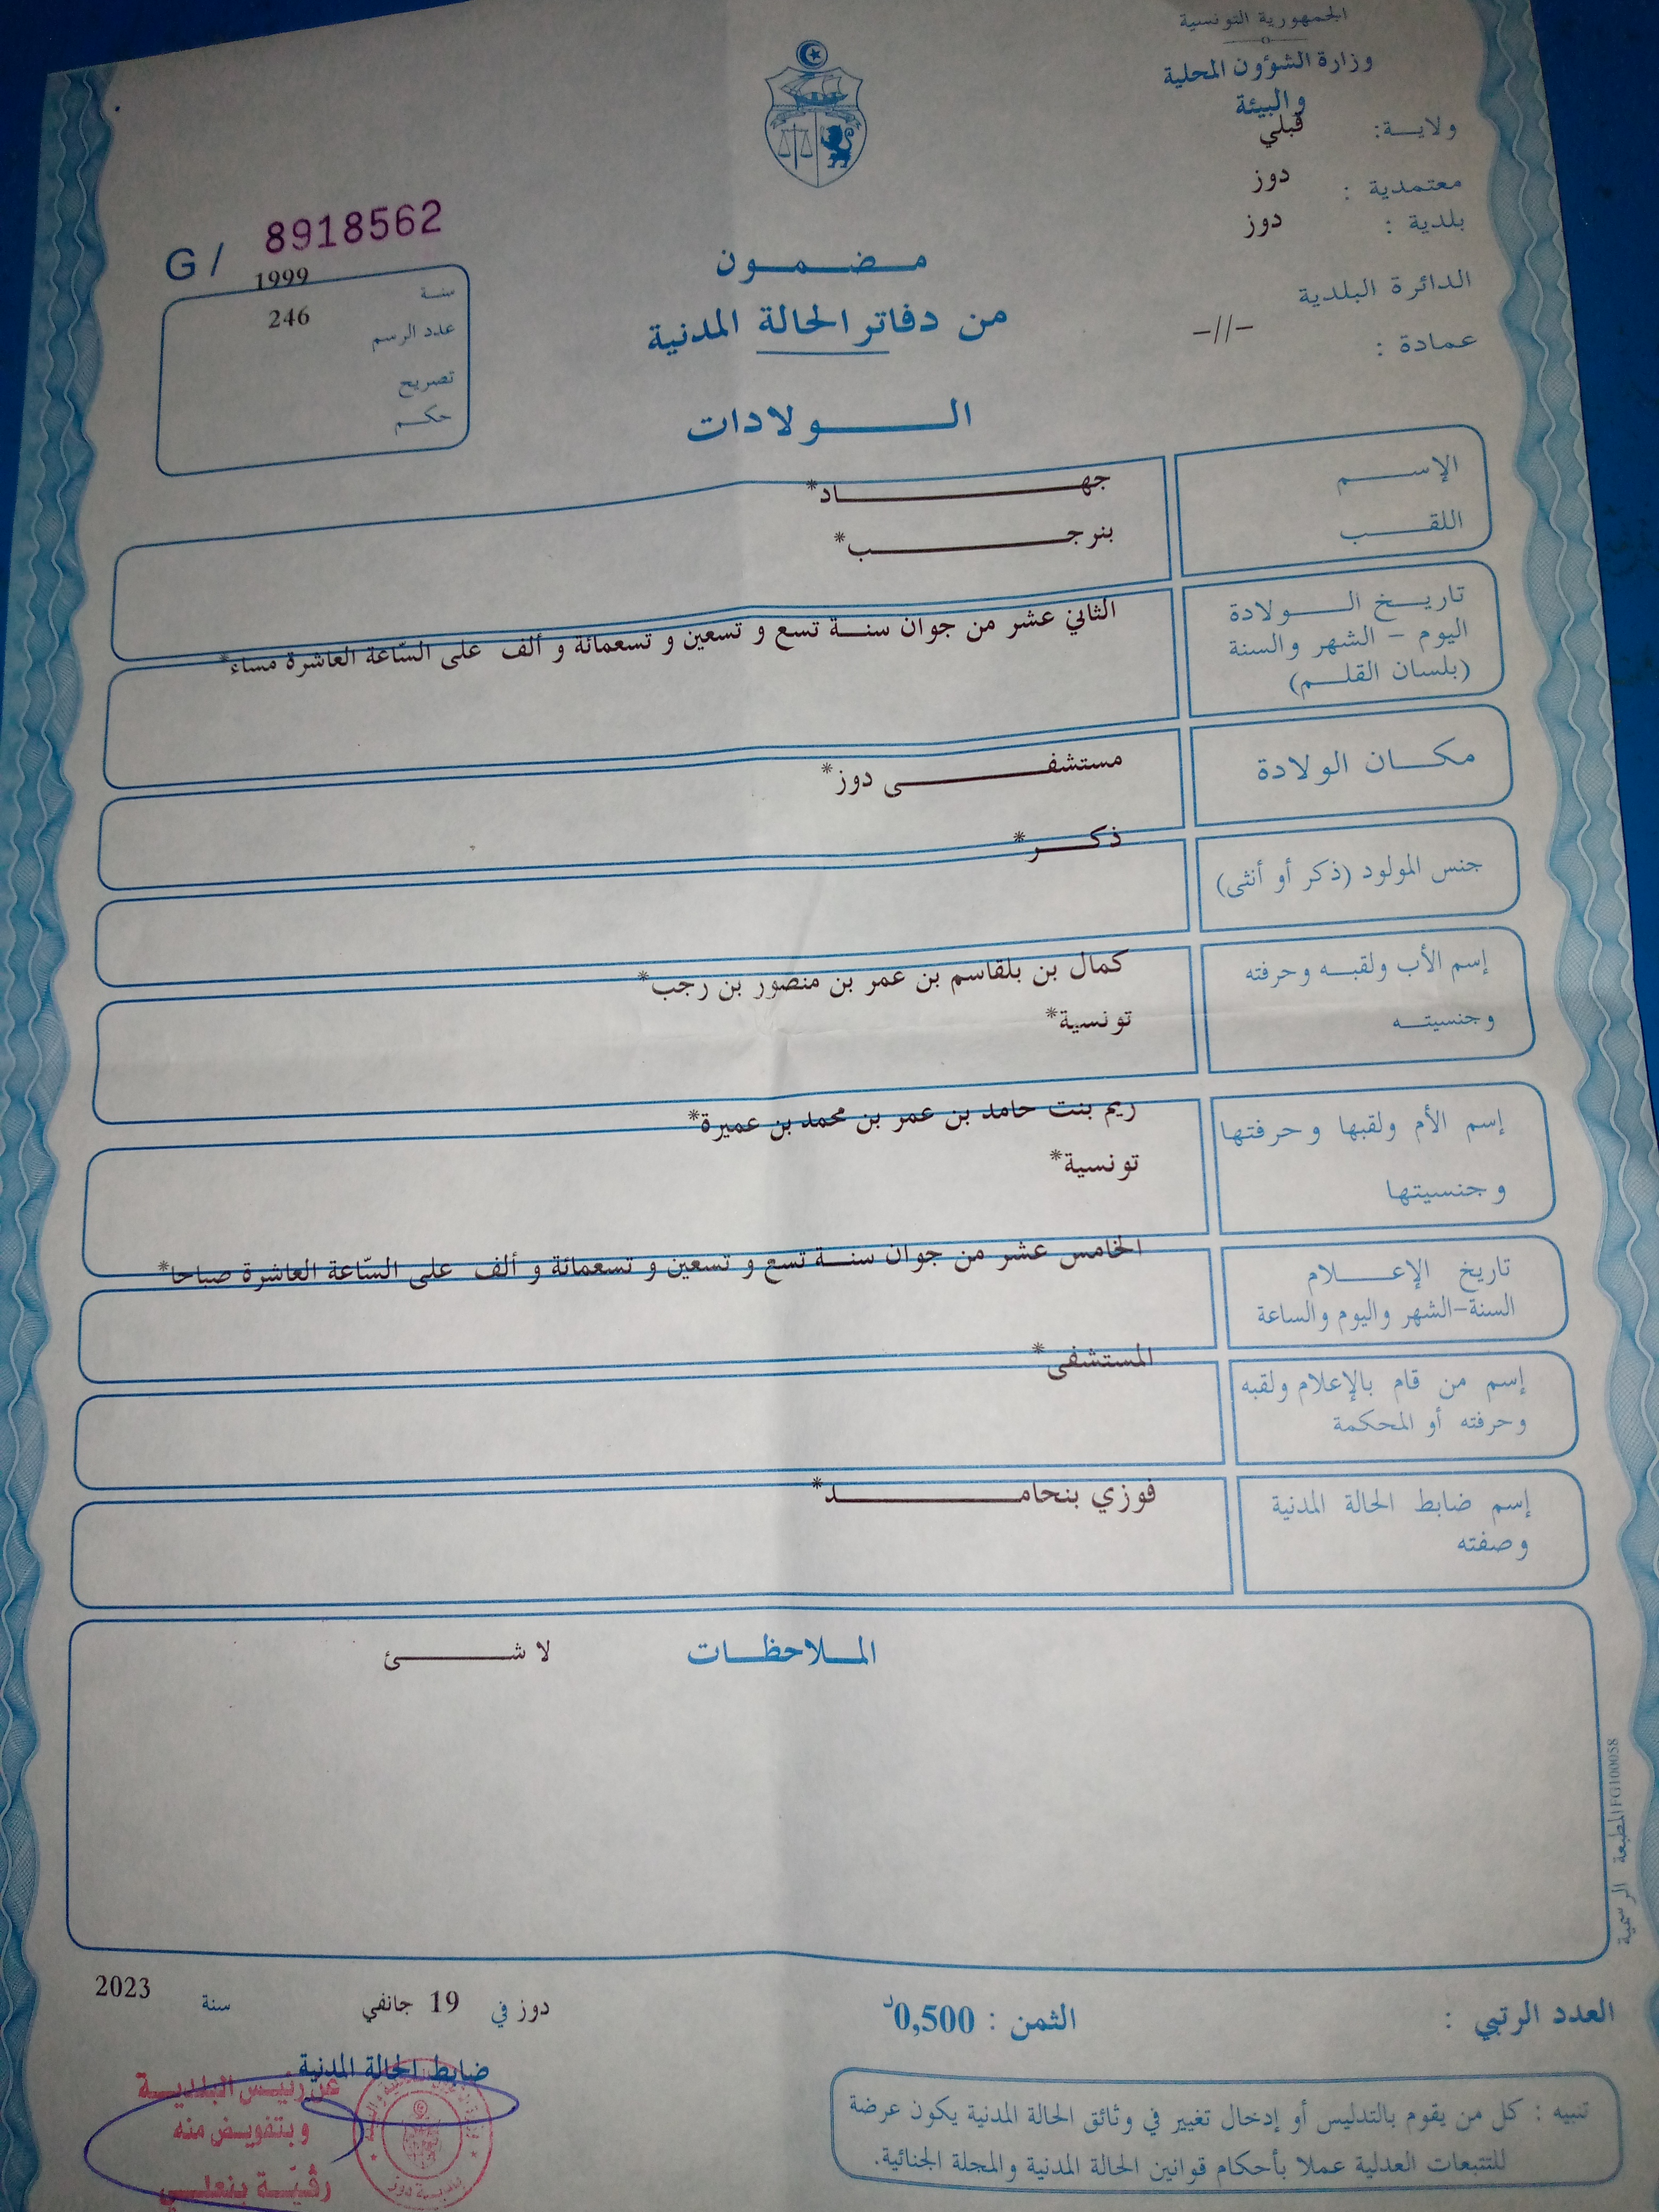 الجمهورية التونسية
وزارة الشؤون المحلية
والبيئة
ولاية: قبلي
معتمدية : دوز
بلدية : دوز
الدائرة البلدية
عمادة : -//-
G / 8918562
سنة 1999
عدد الرسم 246
تصريح
حكم
مضمون
من دفاتر الحالة المدنية
الولادات
الإسم جهاد*
اللقب بنرجب*
تاريخ الولادة
اليوم - الشهر والسنة
(بلسان القلم)
الثاني عشر من جوان سنة تسع و تسعين و تسعمائة و ألف على السّاعة العاشرة مساء*
مكان الولادة مستشفى دوز*
جنس المولود (ذكر أو أنثى) ذكر*
إسم الأب ولقبه وحرفته
وجنسيته
كمال بن بلقاسم بن عمر بن منصور بن رجب*
تونسية*
إسم الأم ولقبها وحرفتها
وجنسيتها
ريم بنت حامد بن عمر بن محمد بن عميرة*
تونسية*
تاريخ الإعلام
السنة-الشهر واليوم والساعة
الخامس عشر من جوان سنة تسع و تسعين و تسعمائة و ألف على السّاعة العاشرة صباحا*
إسم من قام بالإعلام ولقبه
وحرفته أو المحكمة
المستشفى*
إسم ضابط الحالة المدنية
وصفته
فوزي بنحامد*
الملاحظات لا شئ
المطبعة الرسمية FG100058
العدد الرتبي :
الثمن : 0,500د
دوز في 19 جانفي سنة 2023
ضابط الحالة المدنية
عن رئيس البلدية
وبتفويض منه
رڨيّة بنعلي
بلدية دوز
تنبيه : كل من يقوم بالتدليس أو إدخال تغيير في وثائق الحالة المدنية يكون عرضة
للتتبعات العدلية عملا بأحكام قوانين الحالة المدنية والمجلة الجنائية.